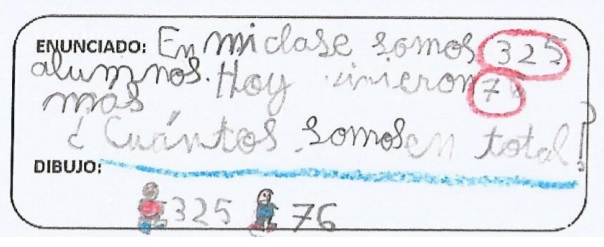 ENUNCIADO: En mi clase somos 325
alumnos. Hoy vinieron 76
más
¿Cuántos somos en total?
DIBUJO:
325 76